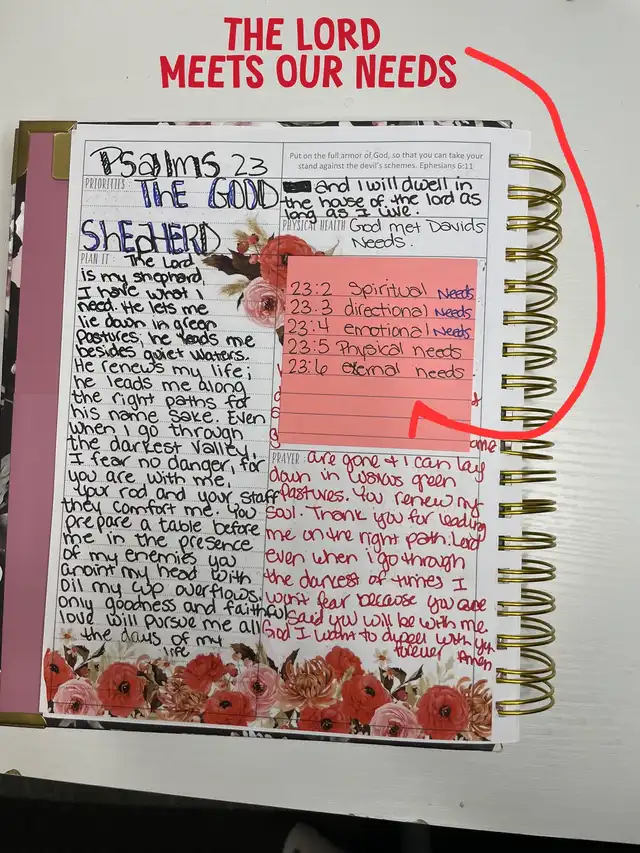 THE LORD
MEETS OUR NEEDS
Psalms 23
PRIORITIES: THE GOOD
SHEPHERD
PLAN IT: The Lord
is my shephard,
I have what I
need. He lets me
lie down in green
pastures; he leads me
besides quiet waters.
He renews my life;
he leads me along
the right paths for
his name sake. Even
when I go through
the darkest valley,
I fear no danger, for
you are with me.
Your rod and your staff
they comfort me. You
prepare a table before
me in the presence
of my enemies you
anoint my head with
oil my cup overflows.
only goodness and faithful
love will pursue me all
the days of my
life
Put on the full armor of God, so that you can take your
stand against the devil's schemes. Ephesians 6:11
and I will dwell in
the house of the lord as
long as I live.
PHYSICAL HEALTH God met Davids
Needs.
23:2 Spiritual Needs
23:3 directional Needs
23:4 emotional Needs
23:5 Physical needs
23:6 eternal needs.
PRAYER: are gone & I can lay
down in green
pastures. You renew my
soul. Thank you for leading
me on the right path. Lord
even when i go through
the darkest of times I
won't fear because you
said you will be with me
God I want to dwell with you
forever Amen